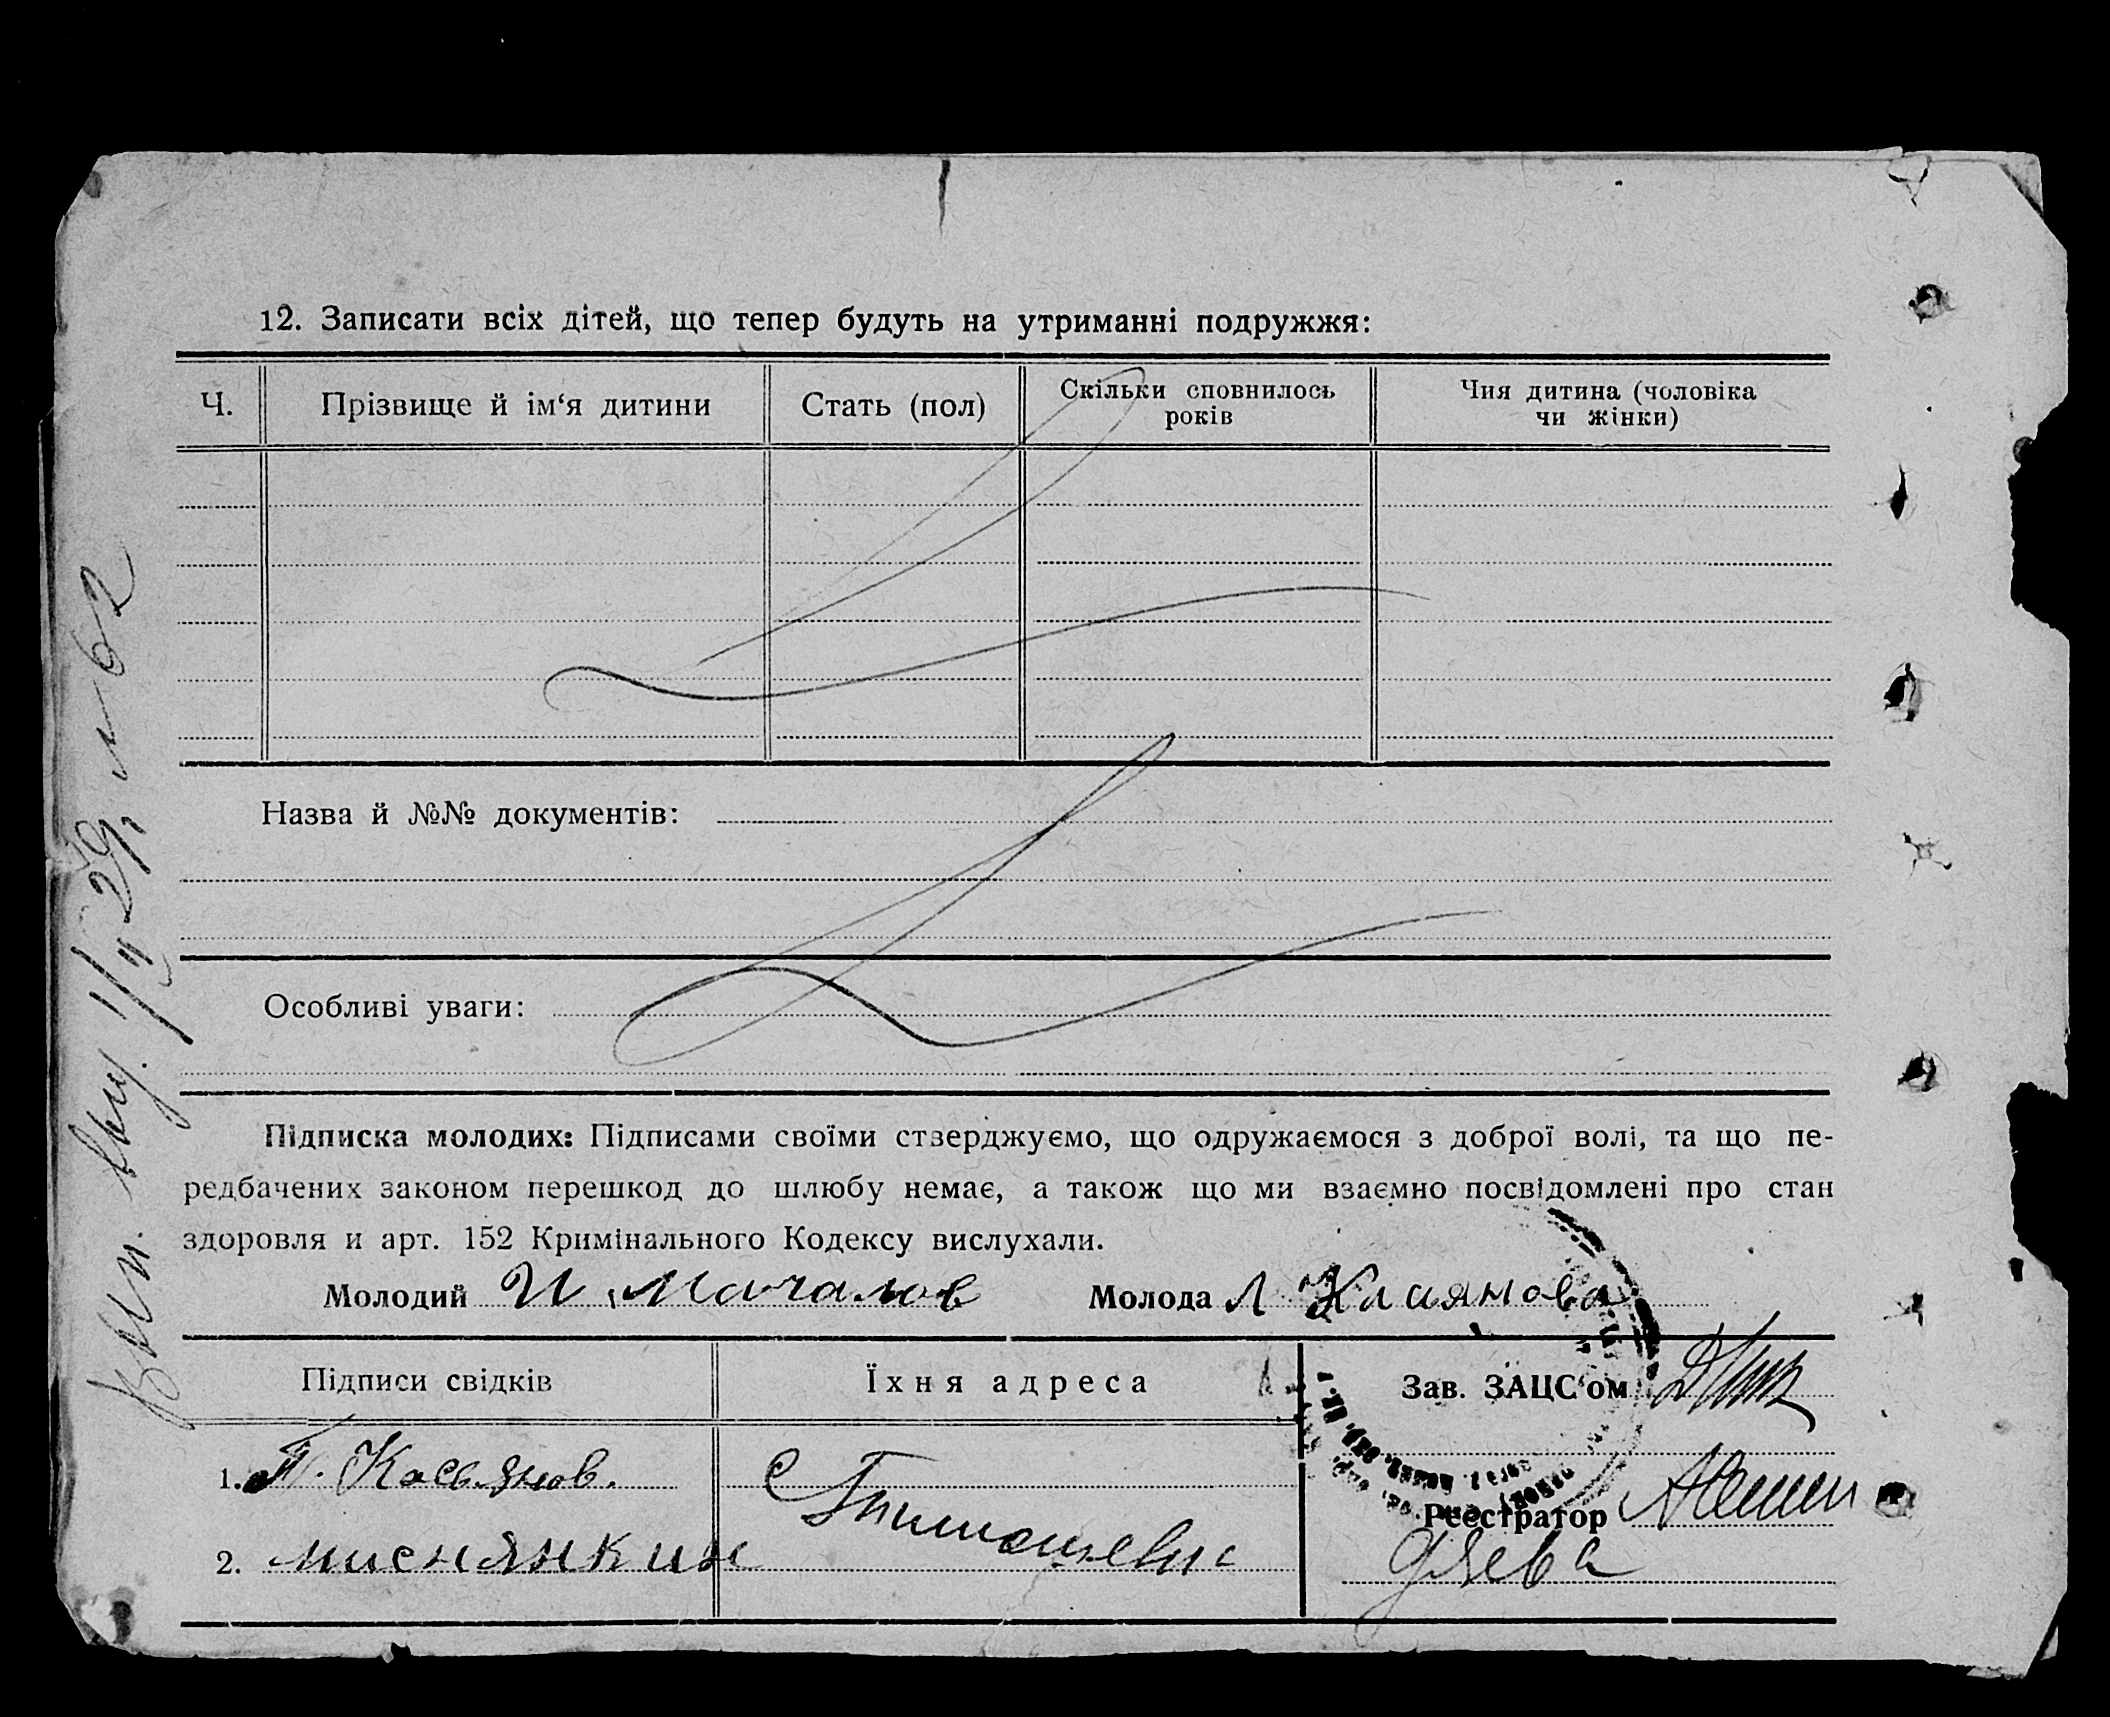 12. Записати всіх дітей, що тепер будуть на утриманні подружжя:
Ч. Прізвище й ім‘я дитини Стать (пол) Скільки сповнилось років Чия дитина (чоловіка чи жінки)
Назва й №№ документів:
Особливі уваги:
Підписка молодих: Підписами своїми стверджуємо, що одружаємося з доброї волі, та що пе-
редбачених законом перешкод до шлюбу немає, а також що ми взаємно посвідомлені про стан
здоровля и арт. 152 Кримінального Кодексу вислухали.
Молодий И. Мачалов Молода Л Касиянова
Підписи свідків Їхня адреса Зав. ЗАЦС‘ом
1. П. Касьянов. с
Реєстратор
2. миснянкин